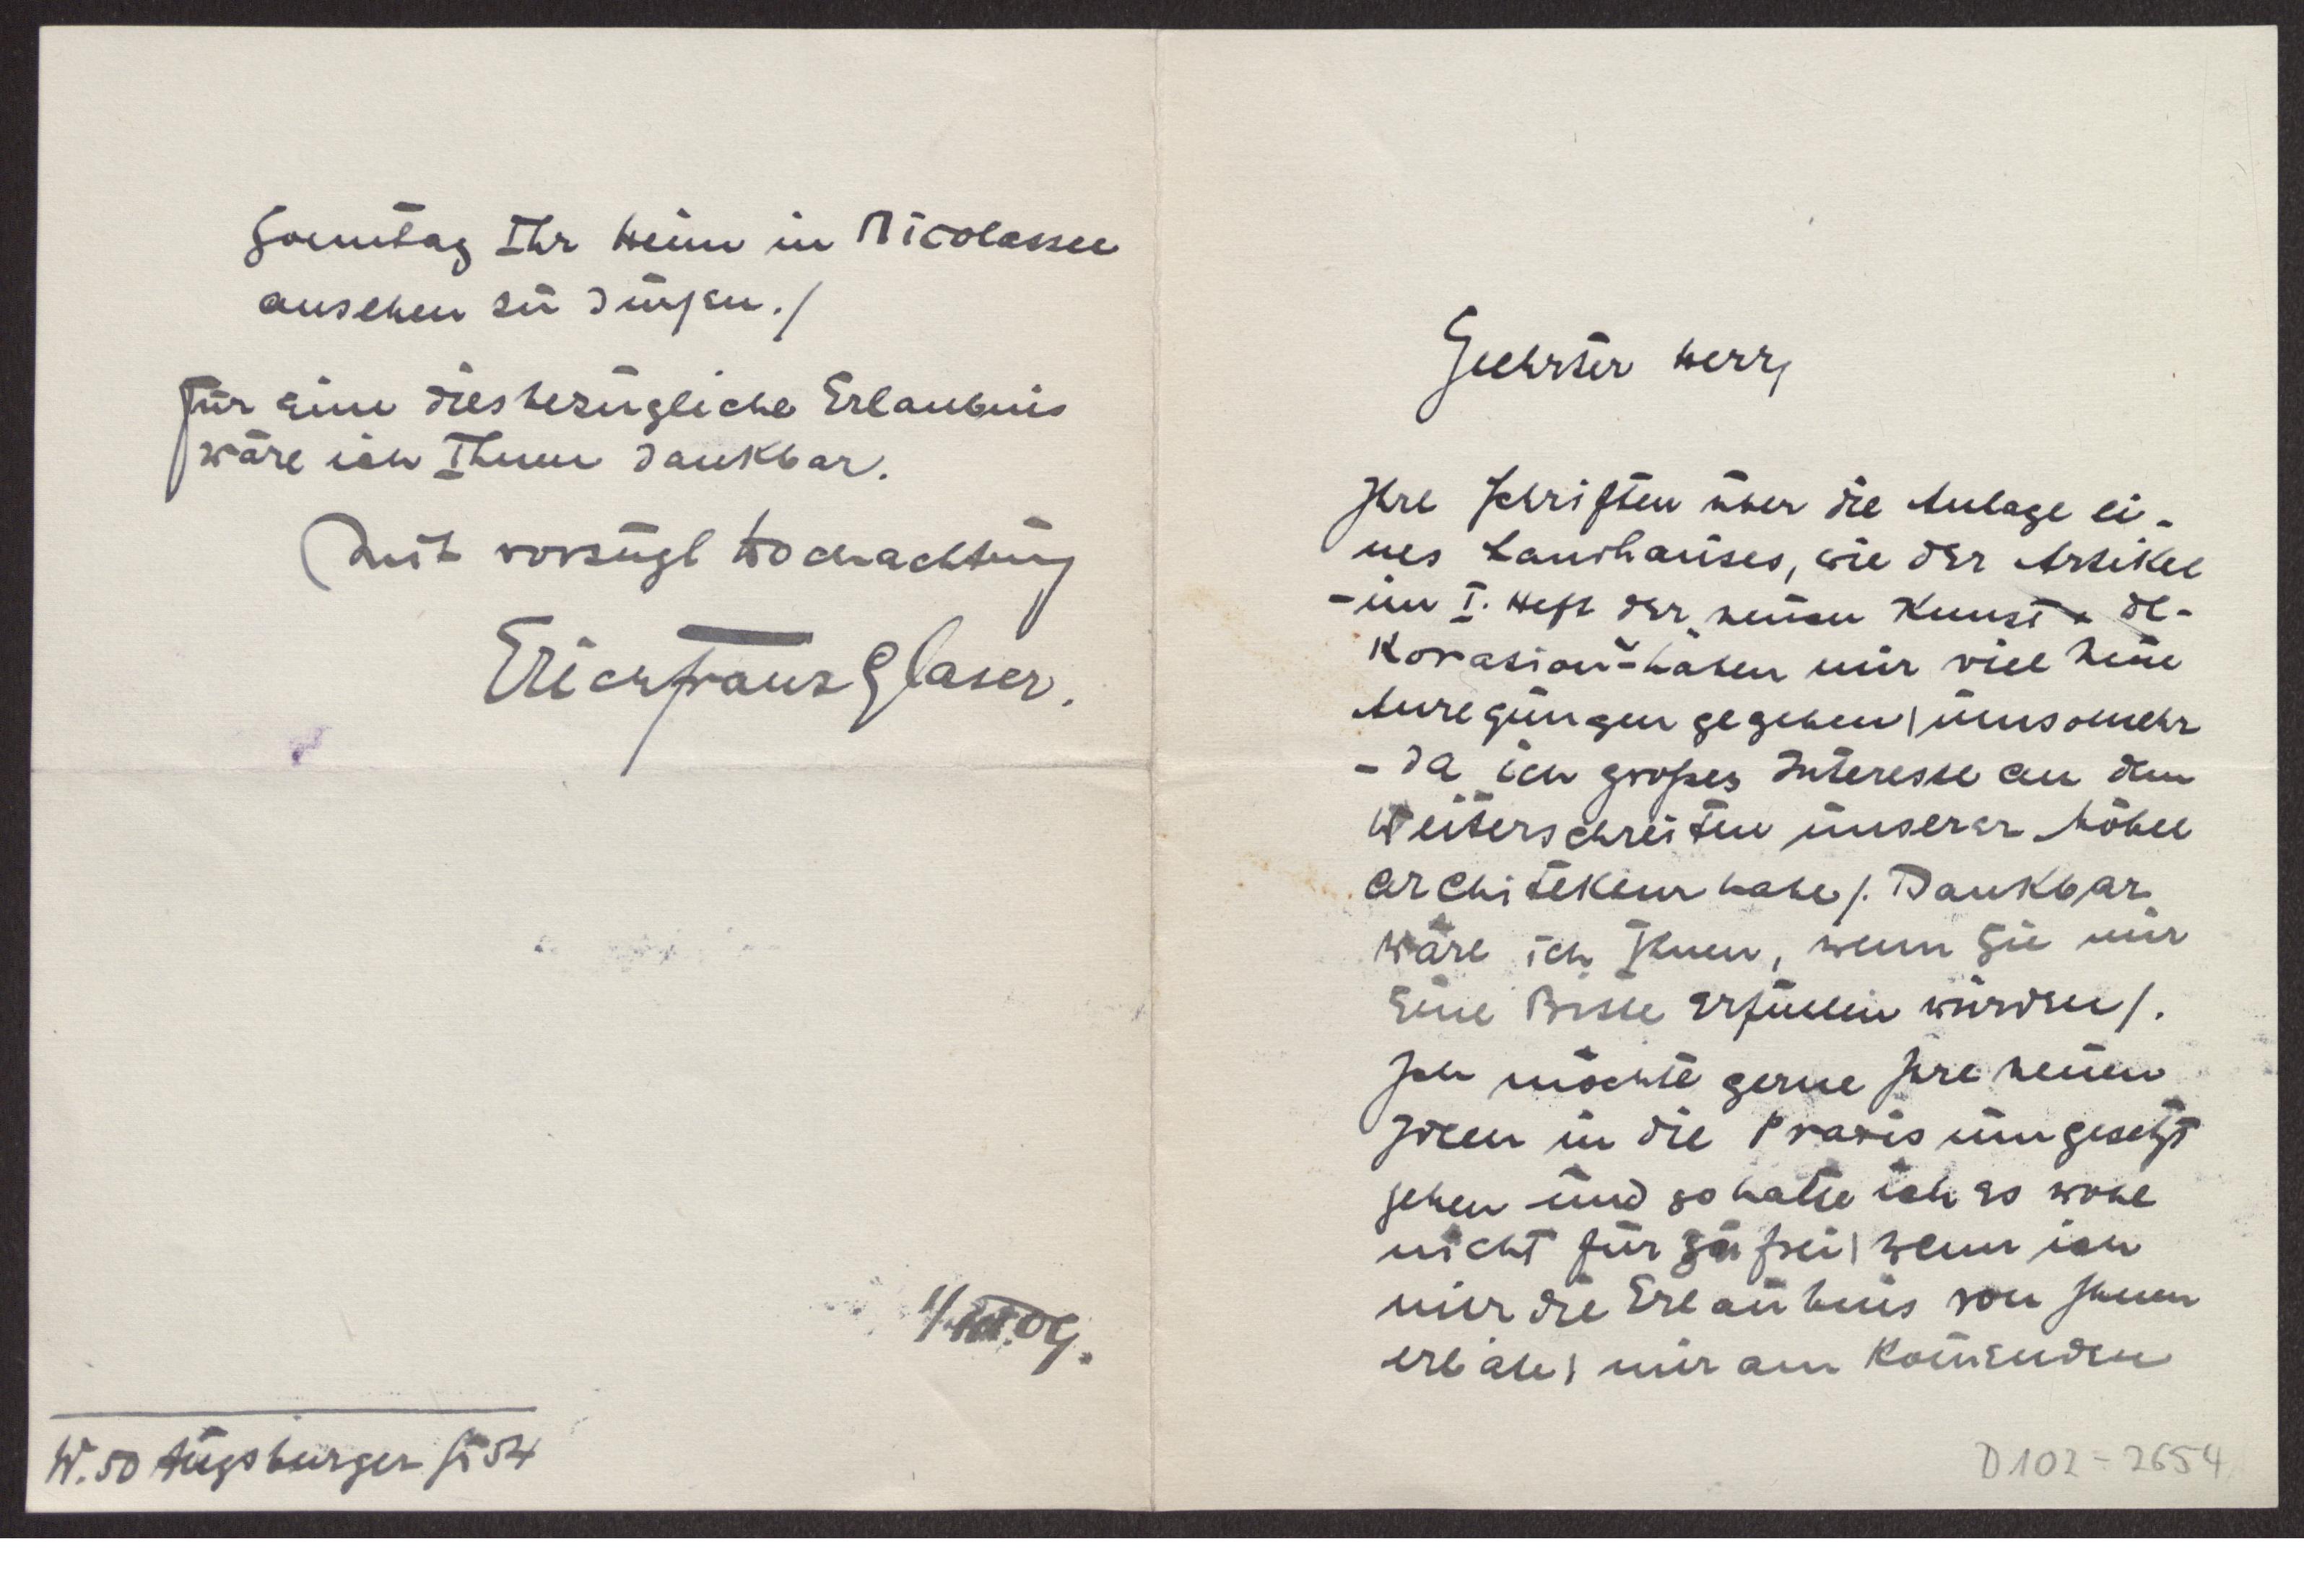 Geehrter Herr,
Ihre Schriften über die Anlage ei-
nes Landhauses, wie der Artikel
- im I. Heft der neuen Kunst u de-
koration - haben mir viel neue
Anregungen gegeben, umsomehr
- da ich großes Interesse an dem
Weiterschreiten unserer Möbel
architektur habe/. Dankbar
wäre ich Ihnen, wenn Sie mir
eine Bitte erfüllen würden/.
Ich möchte gerne Ihre neuen
Ideen in die Praxis umgesetzt
sehen und so halte ich es wohl
nicht für zu frei, wenn ich
mir die Erlaubnis von Ihnen
erbitte, mir am kom̄enden
D 102-2654
Sonntag Ihr Heim in Nicolassee
ansehen zu dürfen./
Für eine diesbezügliche Erlaubnis
wäre ich Ihnen dankbar.
Mit vorzügl Hochachtung
Erich Franz Glaser.
09.
W. 50 Augsburger St 54